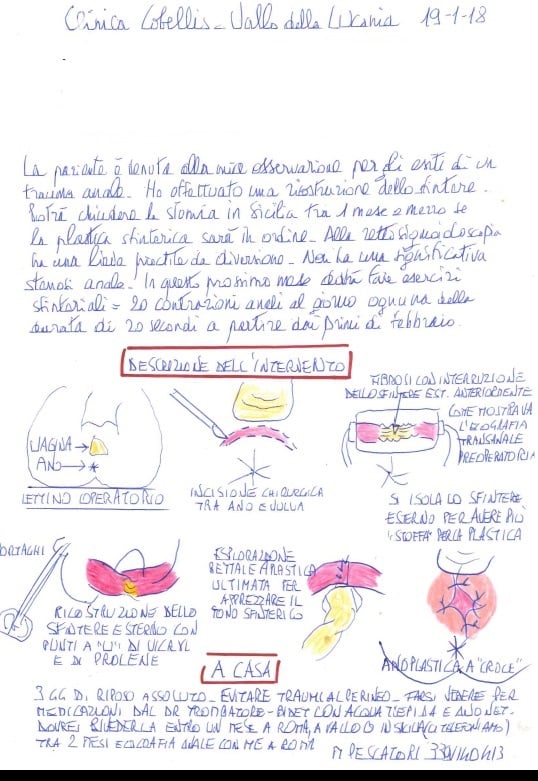 Clinica Cobellis - Vallo della Lucania 19-1-18
La paziente è venuta alla mia osservazione per gli esiti di un
trauma anale. Ho effettuato una ricostruzione dello sfintere.
Potrà chiudere la stomia in Sicilia tra 1 mese e mezzo se
la plastica sfinterica sarà in ordine. Alla rettosigmoidoscopia
ha una lieve proctite da diversione. Non ha una significativa
stenosi anale. In questo prossimo mese dovrà fare esercizi
sfinteriali = 20 contrazioni anali al giorno ognuna della
durata di 20 secondi a partire dai primi di febbraio.
DESCRIZIONE DELL'INTERVENTO
VAGINA
ANO
LETTINO OPERATORIO
INCISIONE CHIRURGICA
TRA ANO E VULVA
FIBROSI CON INTERRUZIONE
DELLO SFINTERE EST. ANTERIORMENTE
COME MOSTRAVA
L'ECOGRAFIA
TRANSANALE
PREOPERATORIA
SI ISOLA LO SFINTERE
ESTERNO PER AVERE PIÙ
"STOFFA" PER LA PLASTICA
PORTAGHI
RICOSTRUZIONE DELLO
SFINTERE ESTERNO CON
PUNTI A "U" DI VICRYL
E DI PROLENE
ESPLORAZIONE
RETTALE A PLASTICA
ULTIMATA PER
APPREZZARE IL
TONO SFINTERICO
ANOPLASTICA A "CROCE"
A CASA
3 GG DI RIPOSO ASSOLUTO - EVITARE TRAUMI AL PERINEO - FARSI VEDERE PER
MEDICAZIONI DAL DR TROMBATORE - BIDET CON ACQUA TIEPIDA E
DOVREI RIVEDERLA ENTRO UN MESE A ROMA, A VALLO O IN SICILIA (CI TELEFONIAMO)
TRA 2 MESI ECOGRAFIA ANALE CON ME A ROMA
M PESCATORI